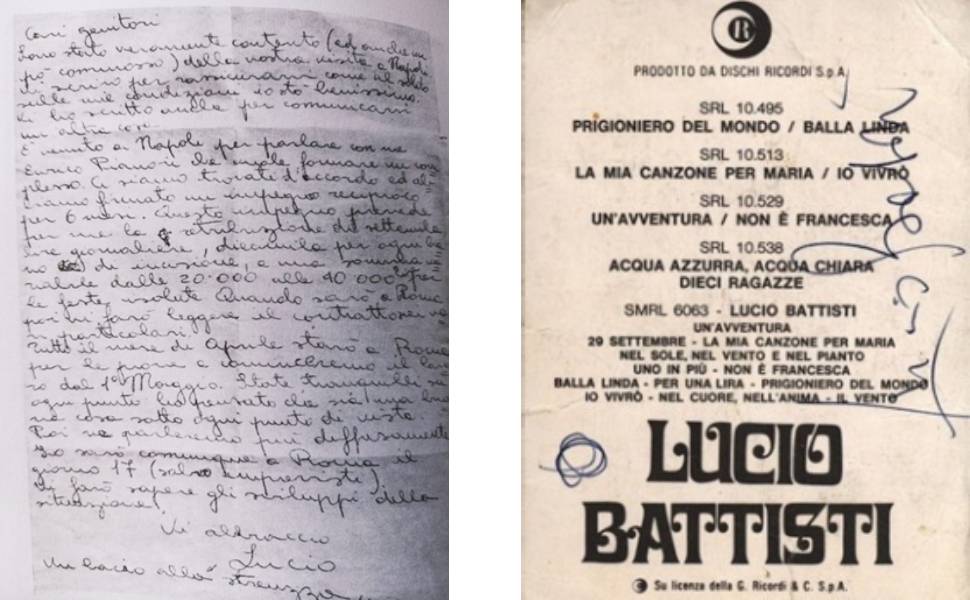 Cari genitori
sono stato veramente contento (ed anche un
pò commosso) della vostra visita a Napoli
vi scrivo per rassicurarvi come al solito
sulle mie condizioni io stò benissimo.
Vi ho scritto anche per comunicarvi
un'altra cosa.
È venuto a Napoli per parlare con me
Enrico Pianori che vuole formare un com
plesso. Ci siamo trovati d'accordo ed ab
biamo firmato un impegno reciproco
per 6 mesi. Questo impegno prevede
per me la retribuzione di settemila
lire giornaliere, diecimila per ogni
di incisione, e una somma
dalle 20.000 alle 40.000 per
le feste, Quando sarò a Roma
poi vi farò leggere il contratto nei
particolari.
Tutto il mese di Aprile starò a Roma
per le prove e cominceremo il lavo
ro dal 1° Maggio. State tranquilli
ogni punto ho pensato che sia una buo
na cosa sotto ogni punto di vista.
Poi ne parleremo più diffusamente
Io sarò comunque a Roma il
giorno 17 (salvo imprevisti)
Vi farò sapere gli sviluppi della
situazione.
Vi abbraccio
Lucio
Un bacio alla
R
PRODOTTO DA DISCHI RICORDI S.p.A.
SRL 10.495
PRIGIONIERO DEL MONDO / BALLA LINDA
SRL 10.513
LA MIA CANZONE PER MARIA / IO VIVRÒ
SRL 10.529
UN'AVVENTURA / NON È FRANCESCA
SRL 10.538
ACQUA AZZURRA, ACQUA CHIARA
DIECI RAGAZZE
SMRL 6063 - LUCIO BATTISTI
UN'AVVENTURA
29 SETTEMBRE - LA MIA CANZONE PER MARIA
NEL SOLE, NEL VENTO E NEL PIANTO
UNO IN PIÙ - NON È FRANCESCA
BALLA LINDA - PER UNA LIRA - PRIGIONIERO DEL MONDO
IO VIVRÒ - NEL CUORE, NELL'ANIMA - IL VENTO
LUCIO
BATTISTI
Su licenza della G. Ricordi & C. S.p.A.